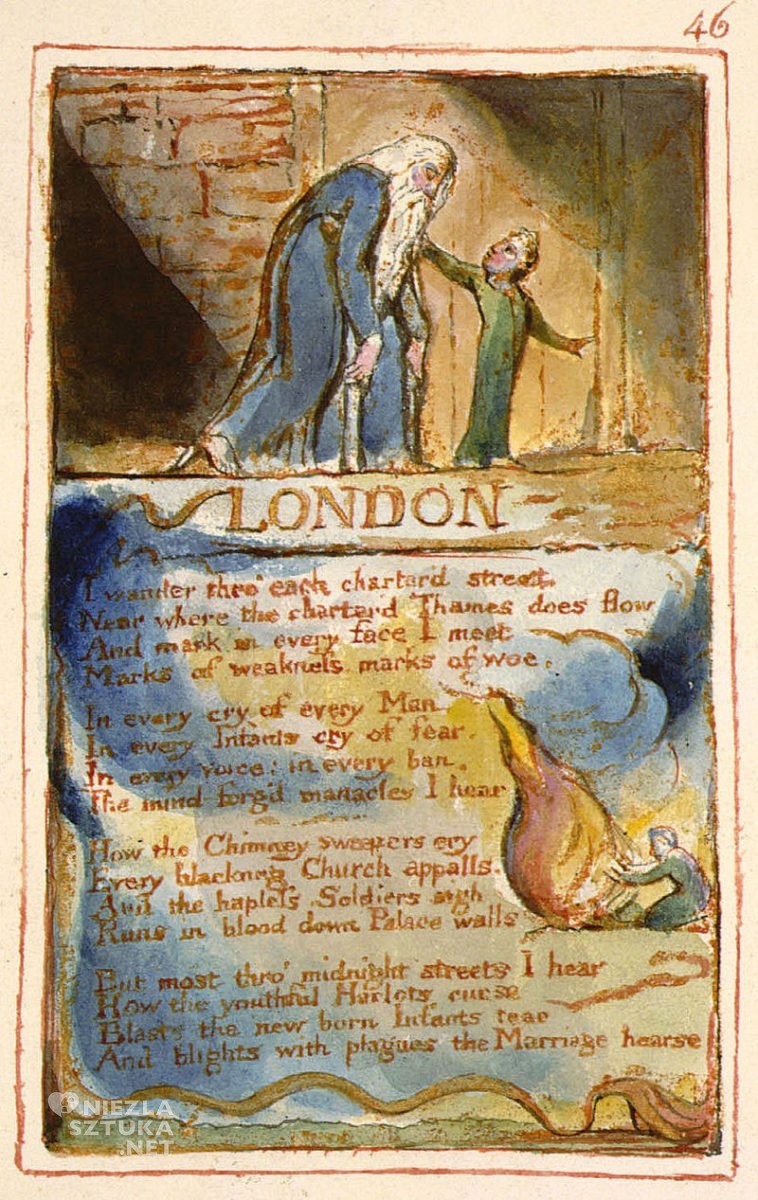 46
LONDON
I wander thro' each charter'd street,
Near where the charter'd Thames does flow
And mark in every face I meet
Marks of weakneſs, marks of woe.
In every cry of every Man,
In every Infants cry of fear,
In every voice: in every ban,
The mind-forg'd manacles I hear
How the Chimney-sweepers cry
Every blackning Church appalls,
And the hapleſs Soldiers sigh
Runs in blood down Palace walls
But most thro' midnight streets I hear
How the youthful Harlots curse
Blasts the new born Infants tear
And blights with plagues the Marriage hearse
NIEZŁA
SZTUKA
.NET